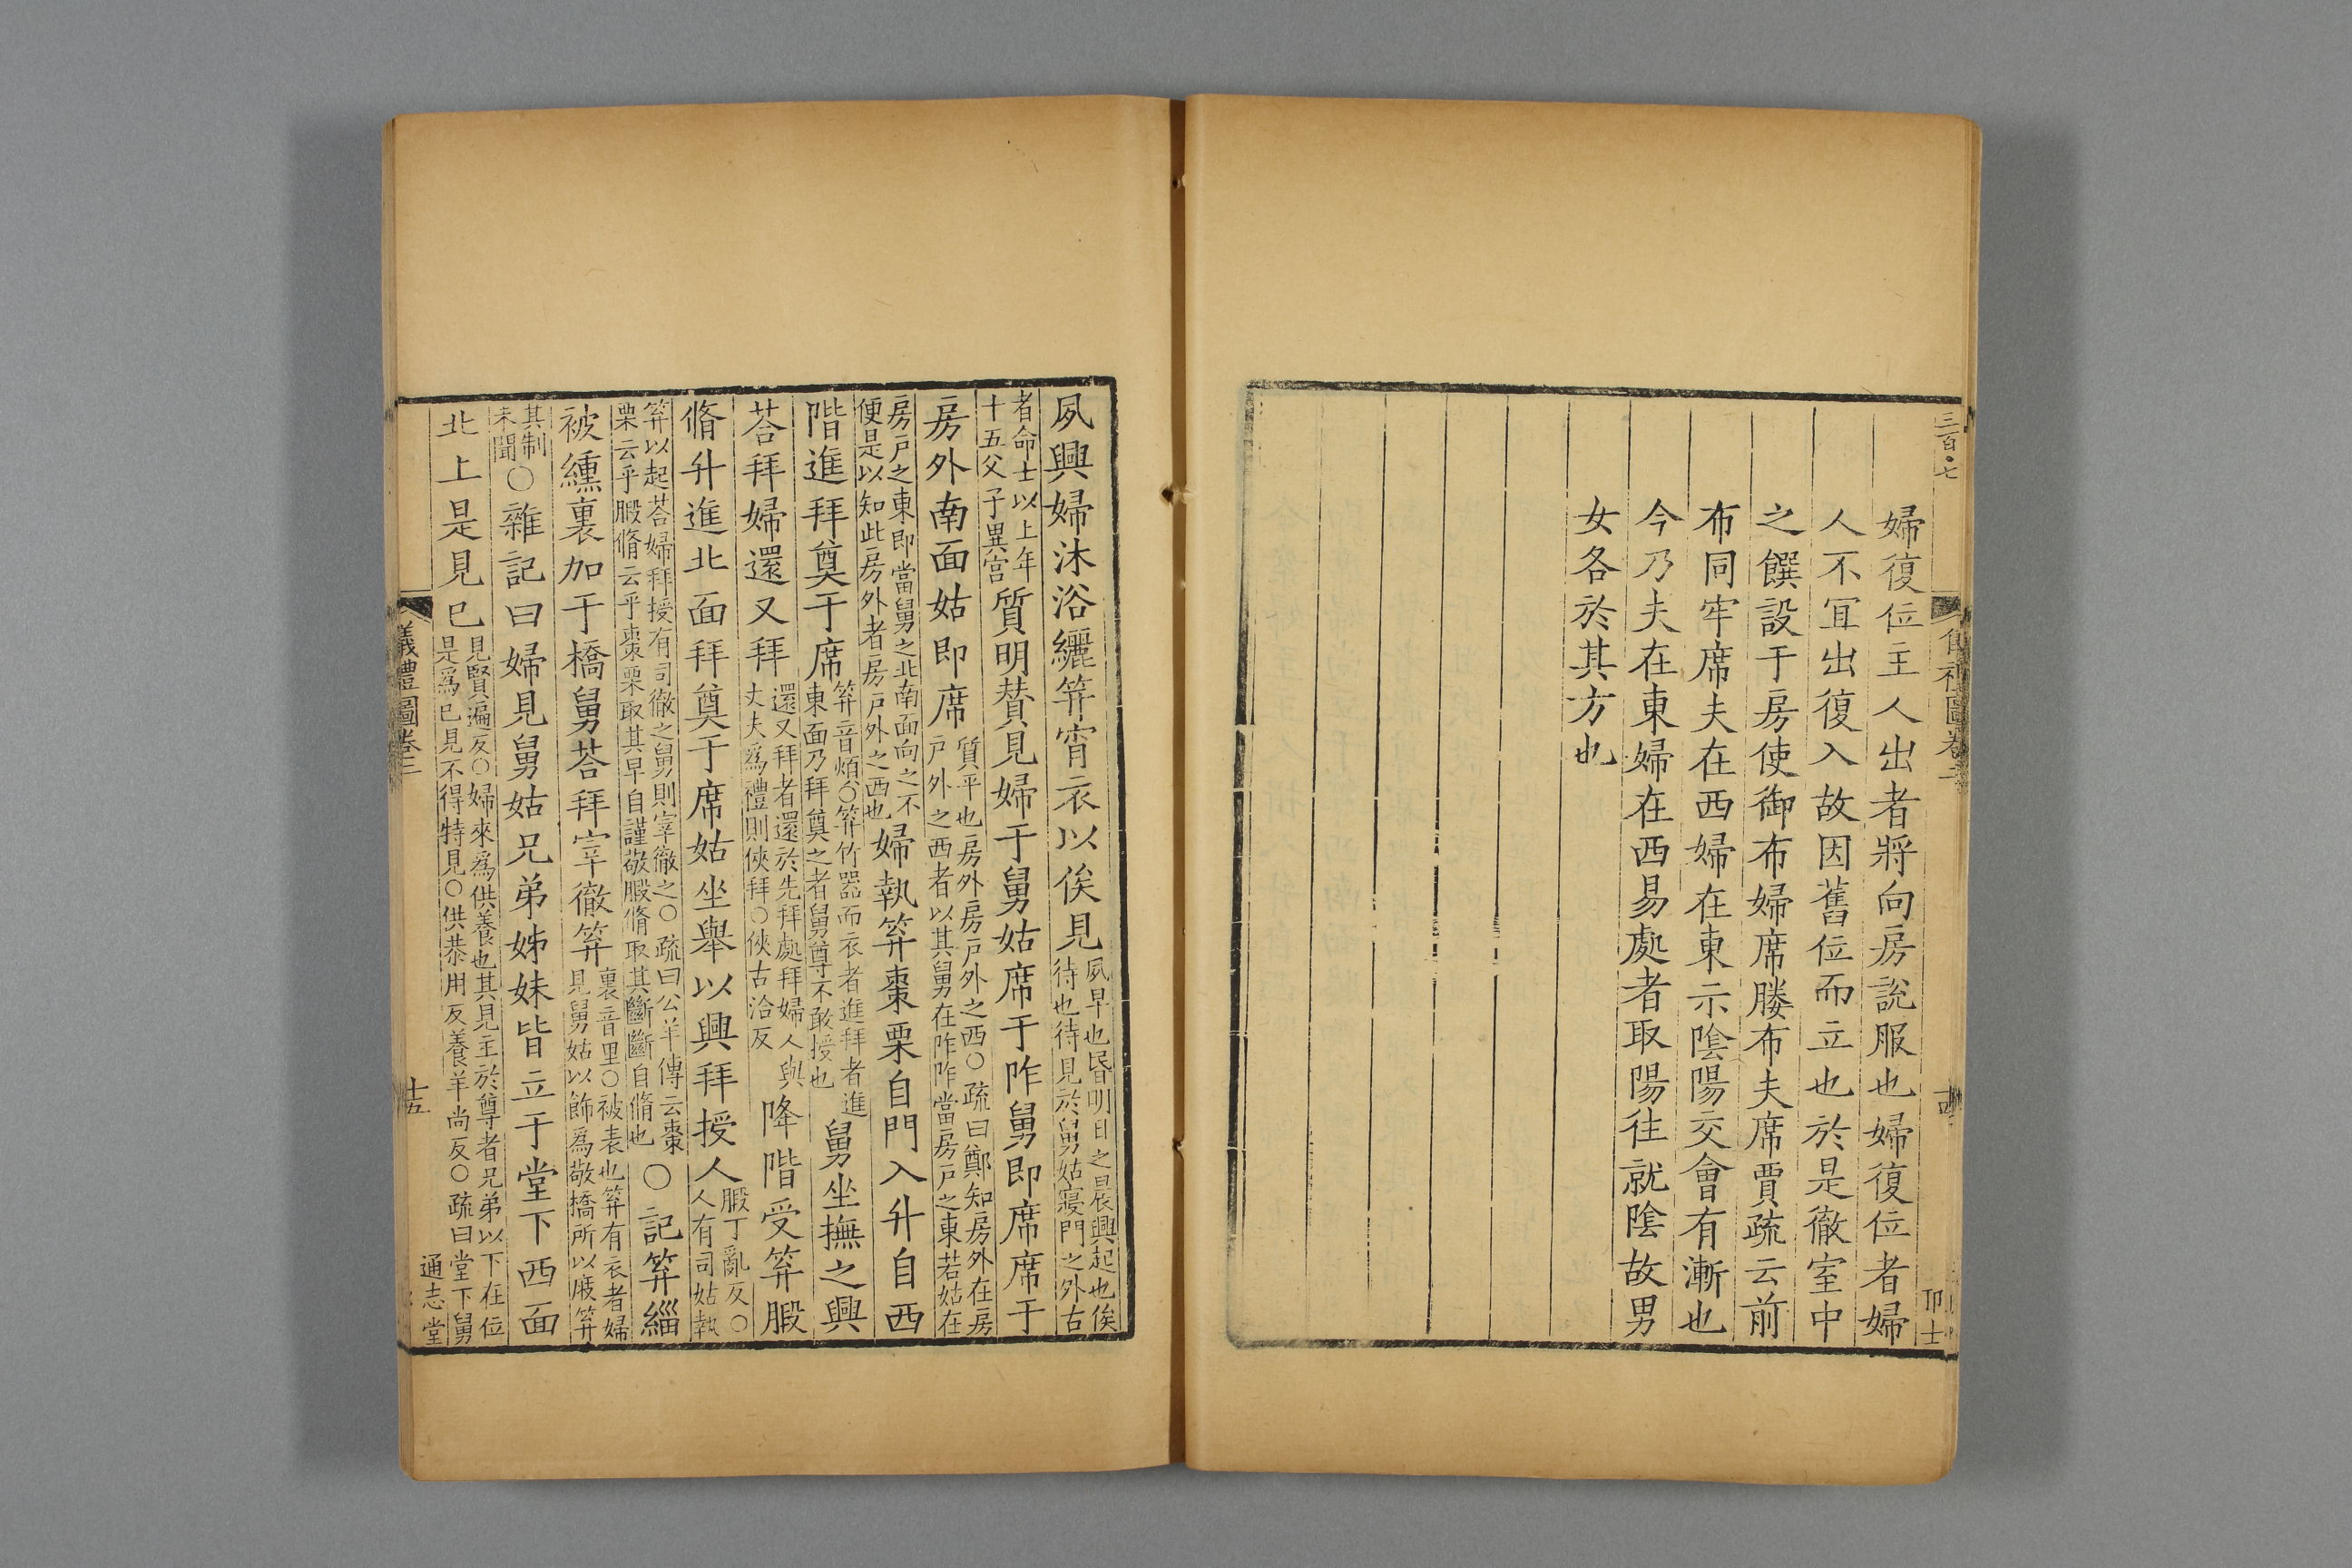 三百七
婦復位主人出者將向房說服也婦復位者婦
人不宜出復入故因舊位而立也於是徹室中
之饌設于房使御布婦席媵布夫席賈疏云前
布同牢席夫在西婦在東示陰陽交會有漸也
今乃夫在東婦在西易處者取陽往就陰故男
女各於其方也
夙興婦沐浴纚笄宵衣以俟見
夙早也昏明日之晨興起也俟
待也待見於舅姑寢門之外古
者命士以上年
十五父子異宮
質明賛見婦于舅姑席于阼舅即席席于
房外南面姑即席
質平也房外房戶外之西○疏曰鄭知房外在房
戶外之西者以其舅在阼阼當房戶之東若姑在
房戶之東即當舅之北南面向之不
便是以知此房外者房戶外之西也
婦執笲棗栗自門入升自西
階進拜奠于席
笲音煩○笲竹器而衣者進拜者進
東面乃拜奠之者舅尊不敢授也
舅坐撫之興
荅拜婦還又拜
還又拜者還於先拜處拜婦人與
丈夫爲禮則俠拜○俠古洽反
降階受笲腶
脩升進北面拜奠于席姑坐舉以興拜授人
腶丁亂反○
人有司姑執
笲以起荅婦拜授有司徹之舅則宰徹之○疏曰公羊傳云棗
栗云乎腶脩云乎棗栗取其早自謹敬腶脩取其斷斷自脩也
○記笲緇
被纁裏加于橋舅荅拜宰徹笲
裏音里○被表也笲有衣者婦
見舅姑以飾爲敬橋所以庪笲
其制
未聞
○雜記曰婦見舅姑兄弟姊妹皆立于堂下西面
北上是見已
見賢遍反○婦來爲供養也其見主於尊者兄弟以下在位
是爲已見不得特見○供恭用反養羊尚反○疏曰堂下舅
儀禮圖卷三
十五
通志堂